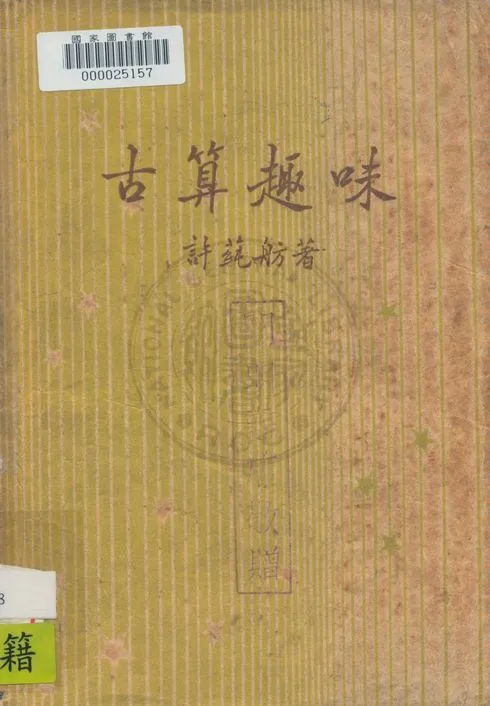 國家圖書館
000025157
古算趣味
許蒓舫著
贈
8
籍